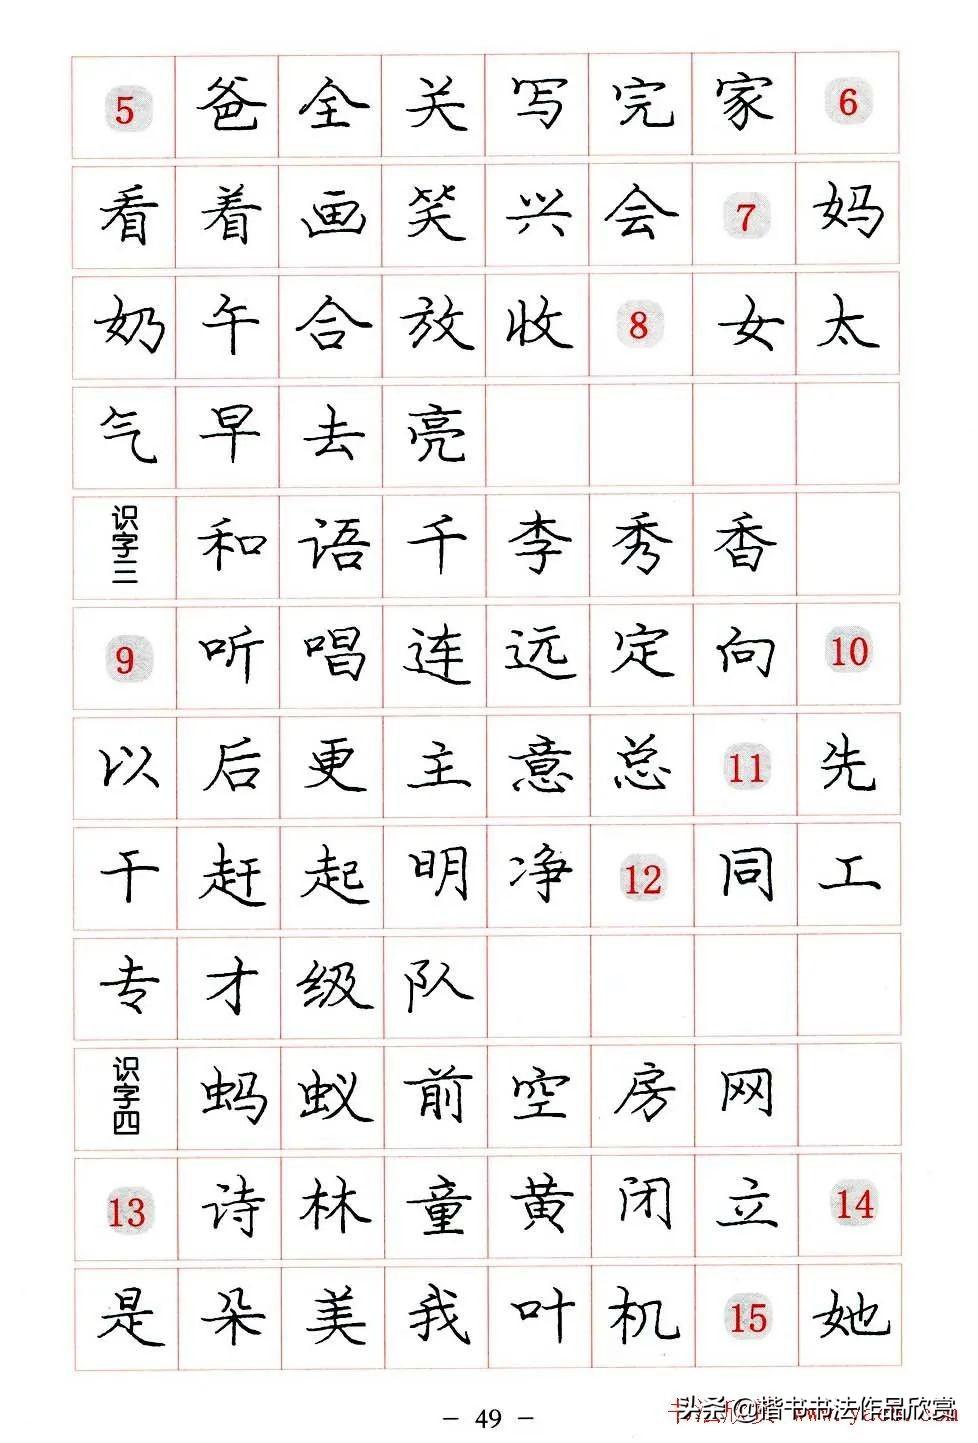 5 爸 全 关 写 完 家 6
看 着 画 笑 兴 会 7 妈
奶 午 合 放 收 8 女 太
气 早 去 亮
识字三 和 语 千 李 秀 香
9 听 唱 连 远 定 向 10
以 后 更 主 意 总 11 先
干 赶 起 明 净 12 同 工
专 才 级 队
识字四 蚂 蚁 前 空 房 网
13 诗 林 童 黄 闭 立 14
是 朵 美 我 叶 机 15 她
- 49 -
头条@楷书书法作品欣赏